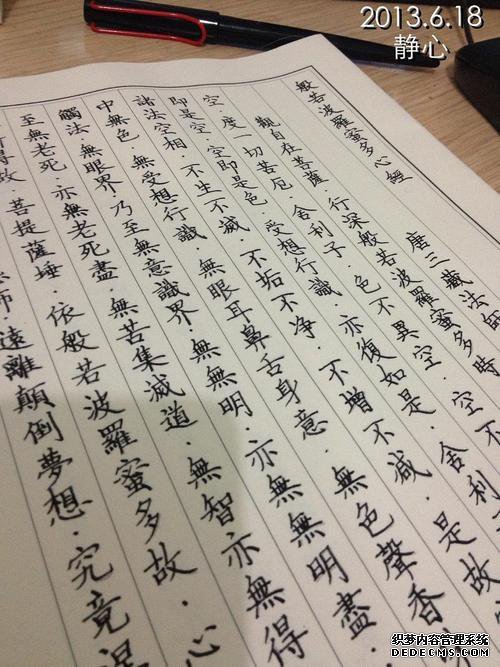 2013.6.18
静心
般若波羅蜜多心經
唐三藏法師
觀自在菩薩·行深般若波羅蜜多時
空·度一切苦厄·舍利子·色不異空·空不
即是空·空即是色·受想行識·亦復如是·舍利
諸法空相·不生不滅·不垢不净·不增不减·是故
中無色·無受想行識·無眼耳鼻舌身意·無色聲香
觸法·無眼界乃至無意識界·無無明·亦無無明盡·
至無老死·亦無老死盡·無苦集滅道·無智亦無得
得故·菩提薩埵·依般若波羅蜜多故·心
遠離顛倒夢想·究竟涅
织梦内容管理系统
DEDECMS.COM